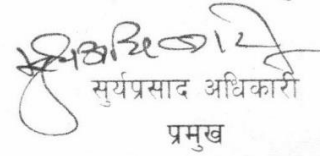 सुर्यप्रसाद अधिकारी
प्रमुख